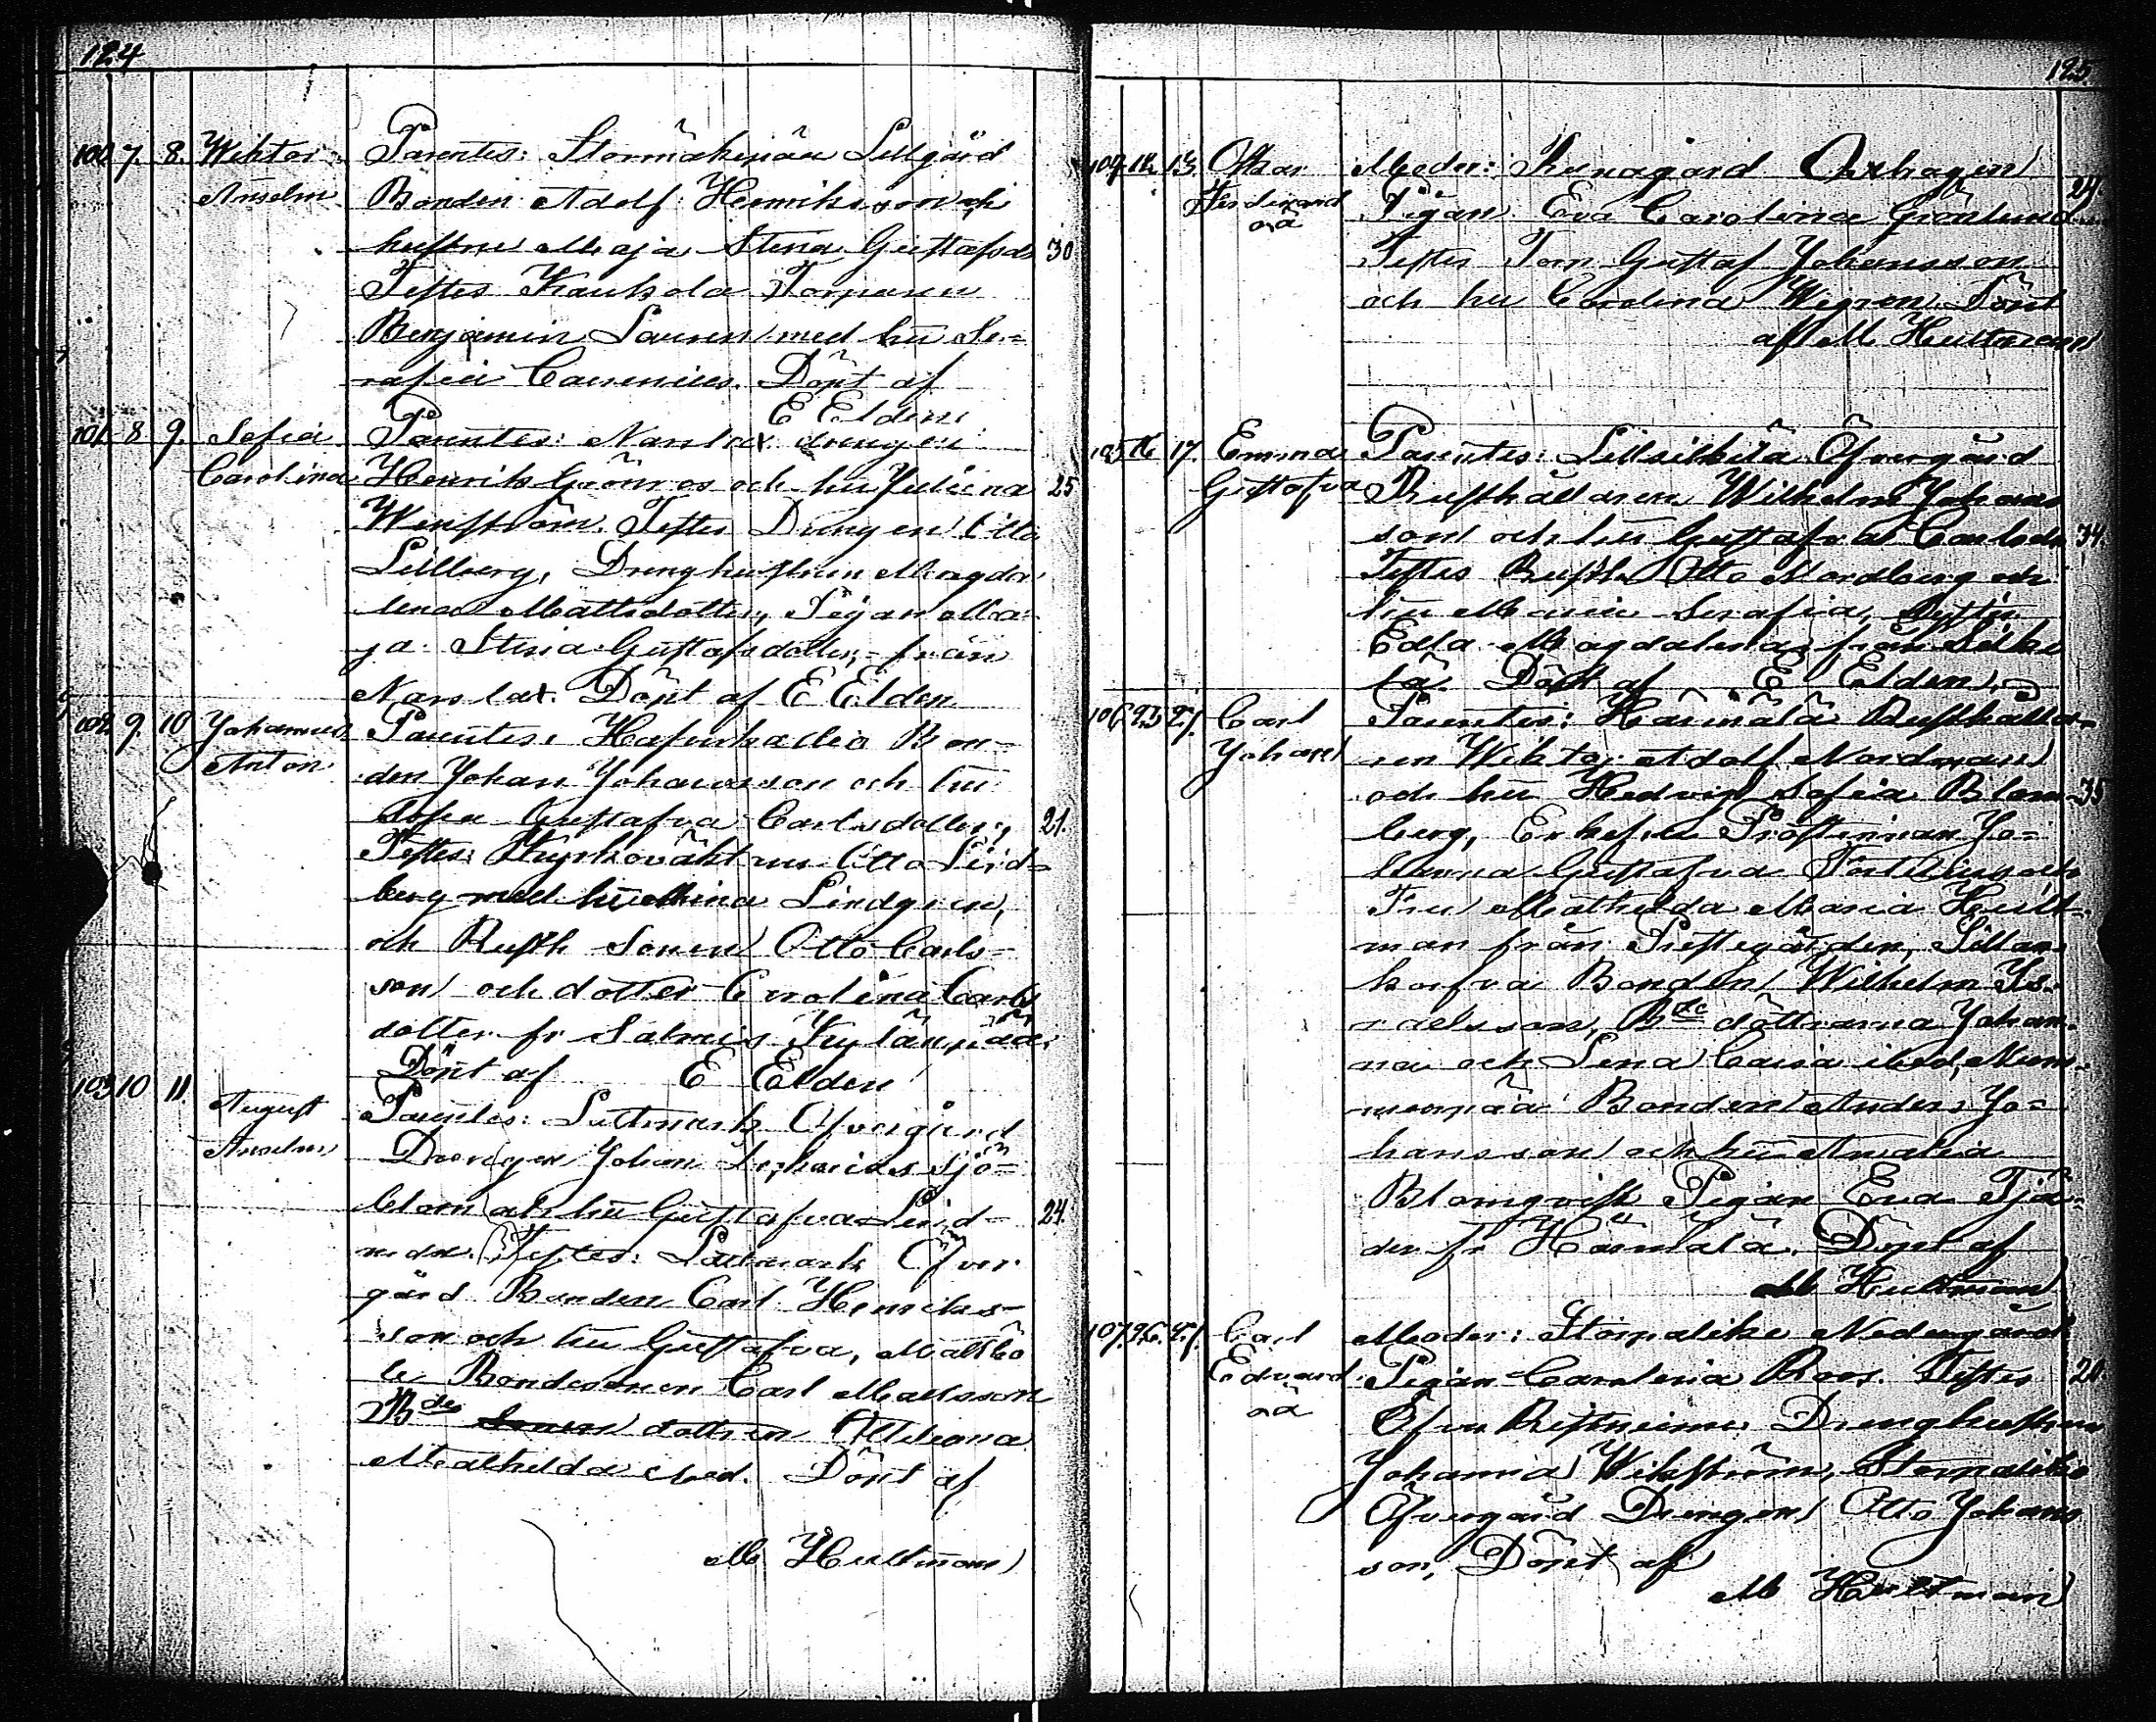 124
100. 7. 8. Wiktor Parentes: Stormäkipää Lillgård
Anselm Bonden Adolf Henriksson och
hustru Maja Stina Gustafsdr 30
Testes Kaukola Torparen
Benjamin Lauren med hu Se-
rafia Carenius. Döpt af
E Elden
101. 8 9. Sofia Parentes: Narslax drengen
Carolina Henrik Grönros och hu Juliana 25
Wenström. Testes Drengen Otto
Lillberg, Drenghustrun Magda-
lena Mattsdotter, Pigan Ma-
ja Stina Gustafsdotter, från
Narslax. Döpt af E Elden
102. 9. 10 Johannes Parentes: Hafurkallio Bon-
Anton den Johan Johansson och hu
Sofia Gustafva Carlsdotter, 21.
Testes: Kyrkoväktaren Otto Lind-
berg med hu Mina Lindgren,
och Rusth Sonen Otto Carls-
son och dotter Carolina Carls
dotter fr Salmis Kylänpää.
Döpt af E Elden
103 10 11. August Parentes: Lattmark Öfvergård
Anselm Drengen Johan Zacharias Sjö-
blom och hu Gustafva Lind- 24.
Testes: Lattmark Öfver
gård Bonden Carl Henriks-
son och hu Gustafva, Mattbö
le Bondesonen Carl Matsson
Bde sonen dottren
Mathilda ibid. Döpt af
M Hultman
125
104. 12. 13. Oskar Moder: Kunagård Oxhagen
Ferdinand Pigan Eva Carolina Grönlund 24.
oä Testes Torp Gustaf Johansson
och hu Carolina Wigren Döpt
af M Hultman
105 16 17. Emma Parentes: Lillsilkilä Öfvergård
Gustafva Rusthållaren Wilhelm Johans
son och hu Gustafva Carlsdr 34.
Testes Rusth Otto Nordberg och
hu Maria Serafia, Dottr
Edla Magdalena från Silki
lä. Döpt af E Elden
106. 23 27. Carl Parentes: Härmälä Rusthålla-
Johan ren Wiktor Adolf Nordman
och hu Hedvig Sofia Blom- 35
berg, Enkefru Prostinnan Jo-
hanna Gustafva
Fru Mathilda Maria Hult-
man från Prestegården, Sillan-
korfva Bonden Wilhelm Is-
raelsson, Bde döttrarna Johan-
na och Lena Caisa ibid,
Bonden Anders Jo-
hansson och hu Amalia
Blomqvist Pigan Eva Tjä-
der fr Härmälä. Döpt af
M Hultman
107. 26. 27. Carl Moder: Storpalike Nedergård
Edvard Pigan Carolina Roos. Testes 20.
oä Öfver Ristniemi Drenghustrun
Johanna Wikström, Storpalike
Öfvergård Drengen Otto Johans
son, Döpt af
M Hultman